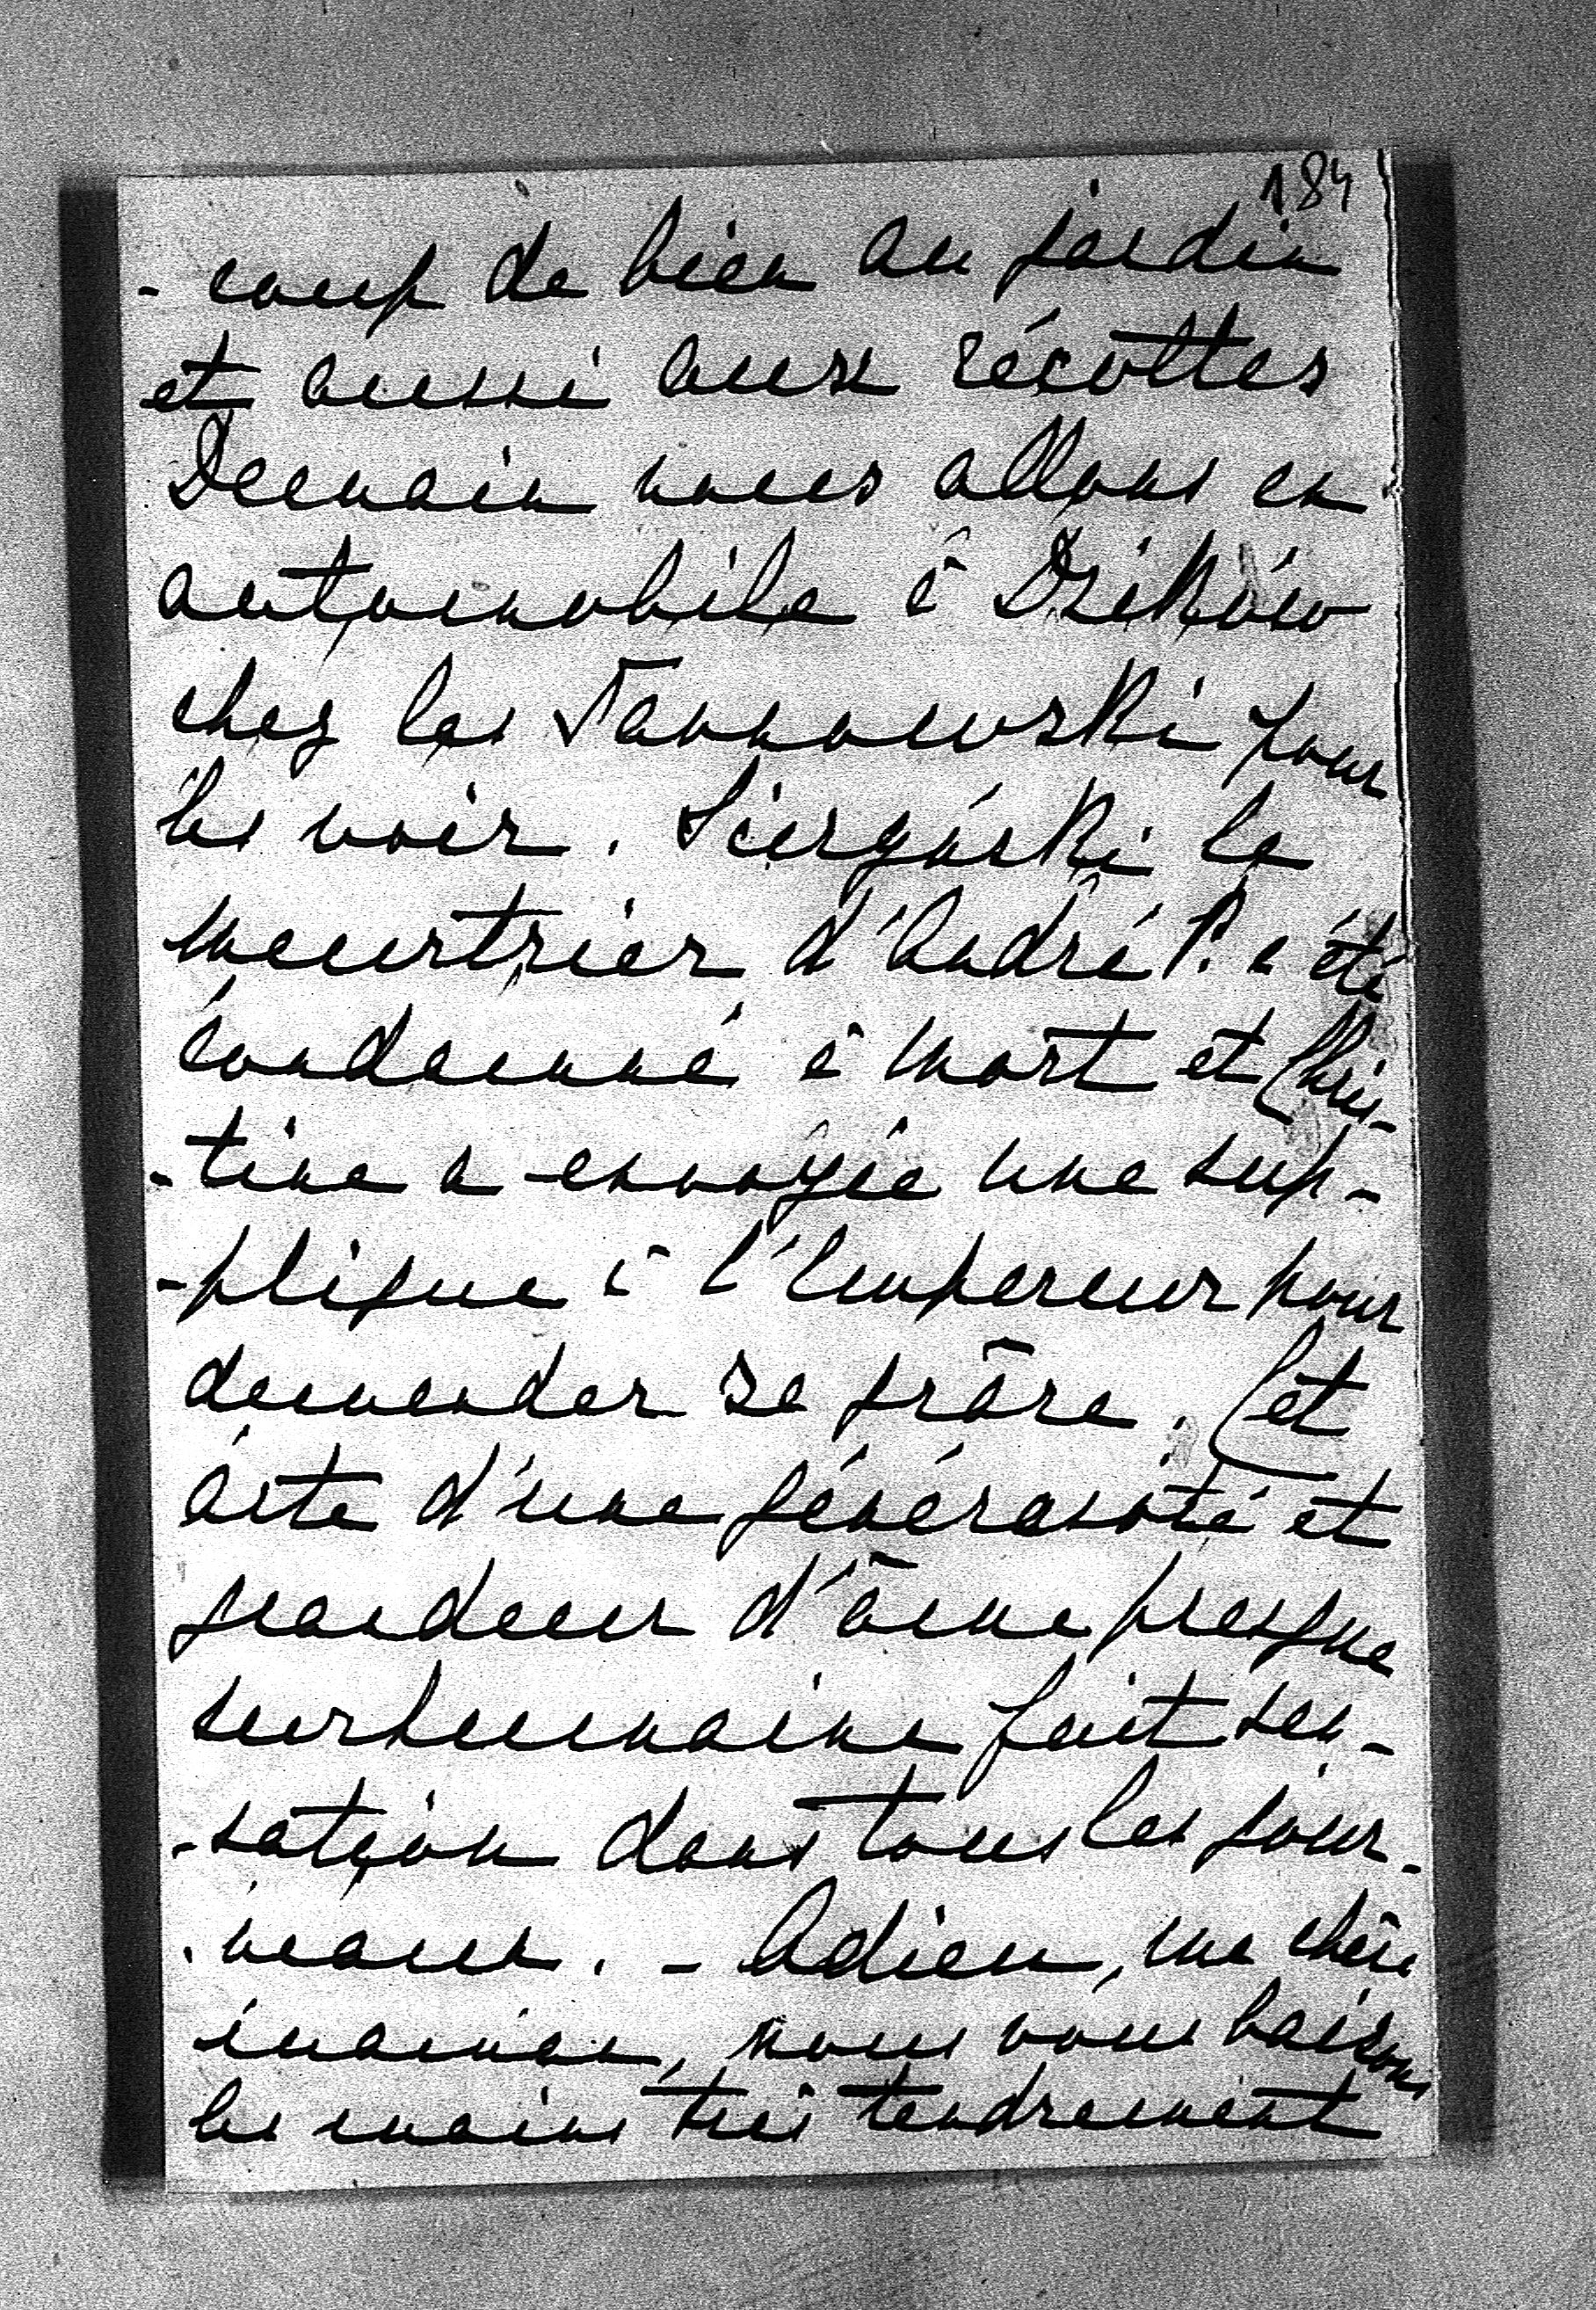 184
- coup de bien au jardin
et aussi aux récoltes
Demain nous allons en
automobile à Dzików
chez les Tarnowski pour
les voir. Siczyński le
meurtrier d'André P. a été
condamné à mort et Chris-
-tine a envoyé une sup-
-plique à l'Empereur pour
demander sa grâce. Cet
acte d'une générosité et
grandeur d'âme presque
surhumaine fait sen-
-sation dans tous les jour-
-naux. - Adieu, ma chère
maman, nous vous baisons
les mains très tendrement